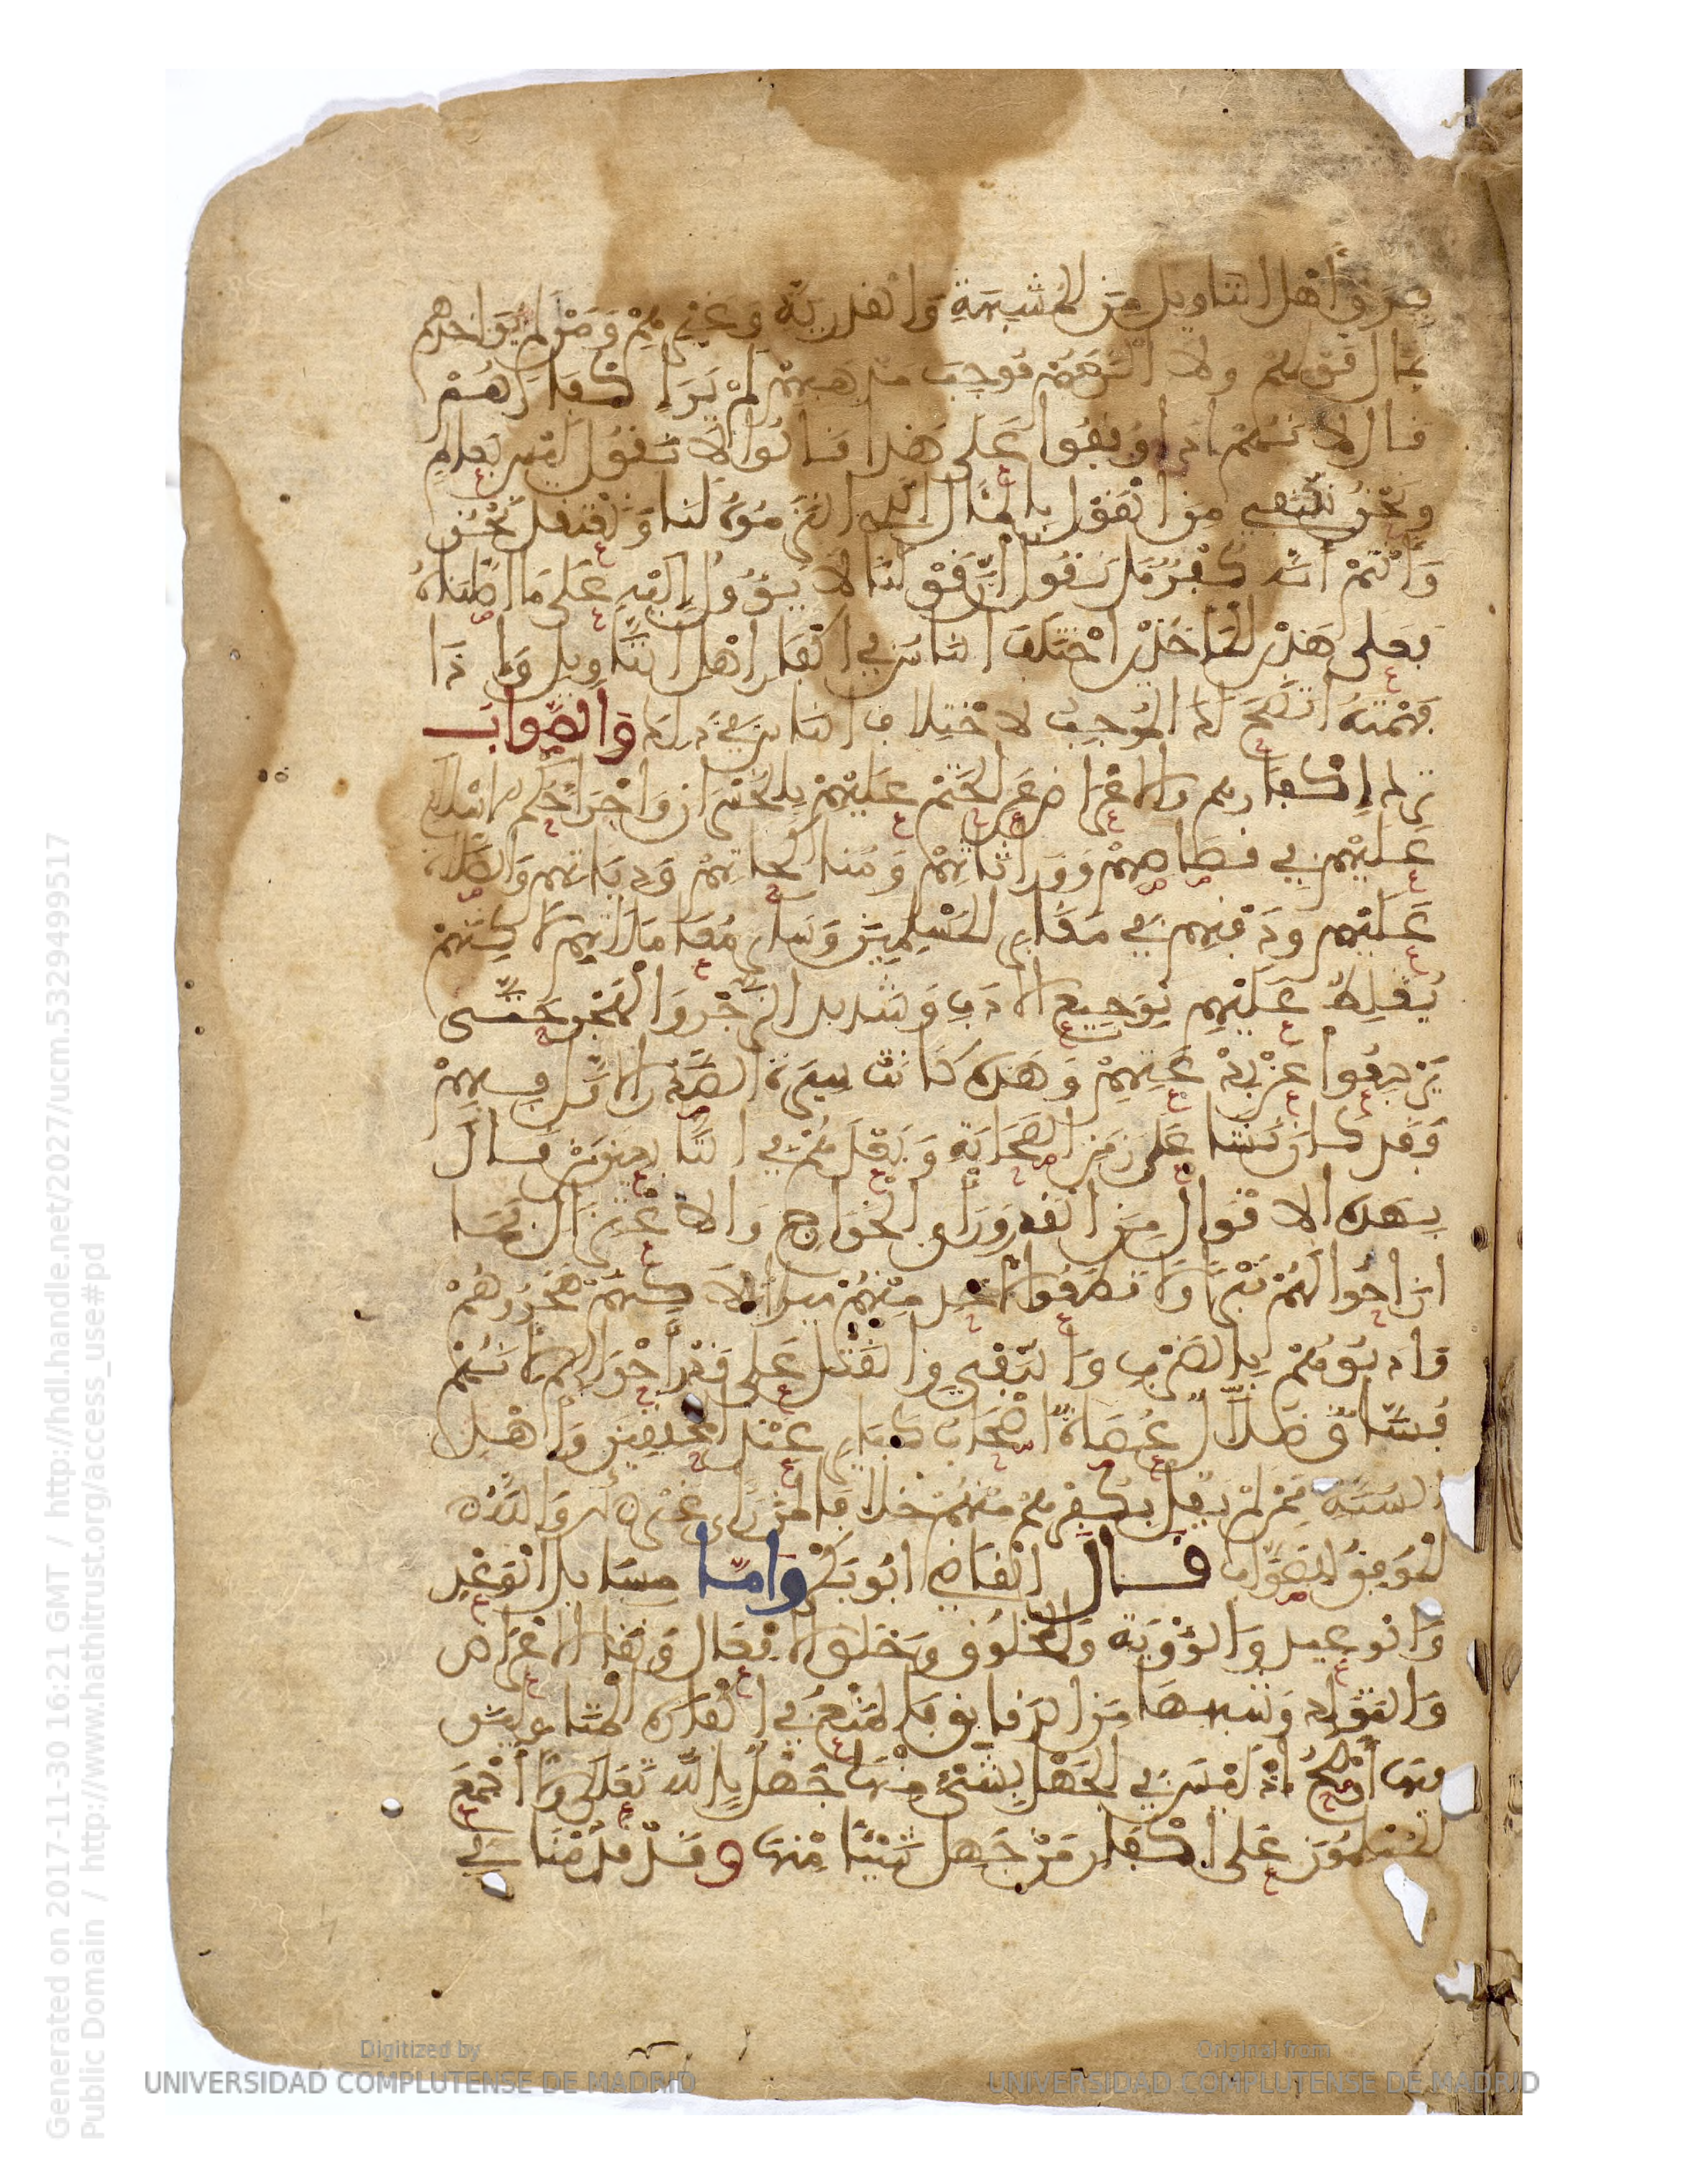 فرق أهل التاويل من المشبهة والقدرية وغيرهم ومن لم يواخذهم
بمآل قولهم ولا الزمهم موجب مذهبهم لم ير إكفارهم
قال لانهم اذا وقفوا على هذا قالوا لا نقول ليس بعالم
ونحن ننتفي من القول بالمآل الذي الزمتموه لنا ونعتقد نحن
وأنتم أنه كفر بل نقول إن قولنا لا يؤول إليه على ما أصلناه
فعلى هذين المأخذين اختلف الناس في إكفار أهل التاويل وإذا
فهمته اتضح لك الموجب لاختلاف الناس في ذلك والصواب
ترك إكفارهم والإعراض عن الحتم عليهم بالخسران وإجراء حكم الإسلام
عليهم في قصاصهم ووراثاتهم ومناكحاتهم ودياتهم والصلاة
عليهم ودفنهم في مقابر المسلمين وسائر معاملاتهم لاكنهم
يغلظ عليهم بوجيع الأدب وشديد الزجر والهجر حتى
يرجعوا عن بدعتهم وهذه كانت سيرة الصدر الأول فيهم
فقد كان نشأ على زمن الصحابة وبعدهم في التابعين من قال
بهذه الاقوال من القدر ورأي الخوارج والاعتزال فما
ازاحوا لهم قبرا ولا قطعوا لأحد منهم ميراثا لاكنهم هجروهم
وادبوهم بالضرب والنفي والقتل على قدر أحوالهم لأنهم
فساق ضلال عصاة أصحاب كبائر عند المحققين وأهل
السنة ممن لم يقل بكفرهم منهم خلافا لمن رأى غير ذلك والله
الموفق للصواب قال القاضي ابو بكر واما مسايل الوعد
والوعيد والرؤية والمخلوق وخلق الأفعال وبقاء الأعراض
والتولد وشبهها من الدقايق فالمنع في إكفار المتاولين
فيها أوضح إذ ليس في الجهل بشيء منها جهل بالله تعالى ولا أجمع
المسلمون على إكفار من جهل شيئا منها وقد قدمنا في